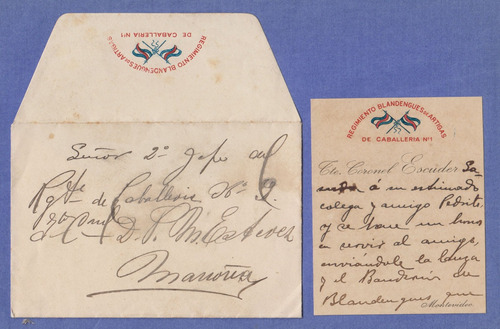 REGIMIENTO BLANDENGUES DE ARTIGAS
DE CABALLERIA Nº1
Señor 2º Jefe del
Rgtº de Caballería Nº 9.
D. P. M. Esteves
REGIMIENTO BLANDENGUES DE ARTIGAS
DE CABALLERIA Nº1
Tte. Coronel Escúder Sa-
luda a su estimado
colega y amigo Pedrito
y se hace un honor
en servir al amigo,
enviándole la lanza
y el Banderín de
Blandengues, que
Montevideo